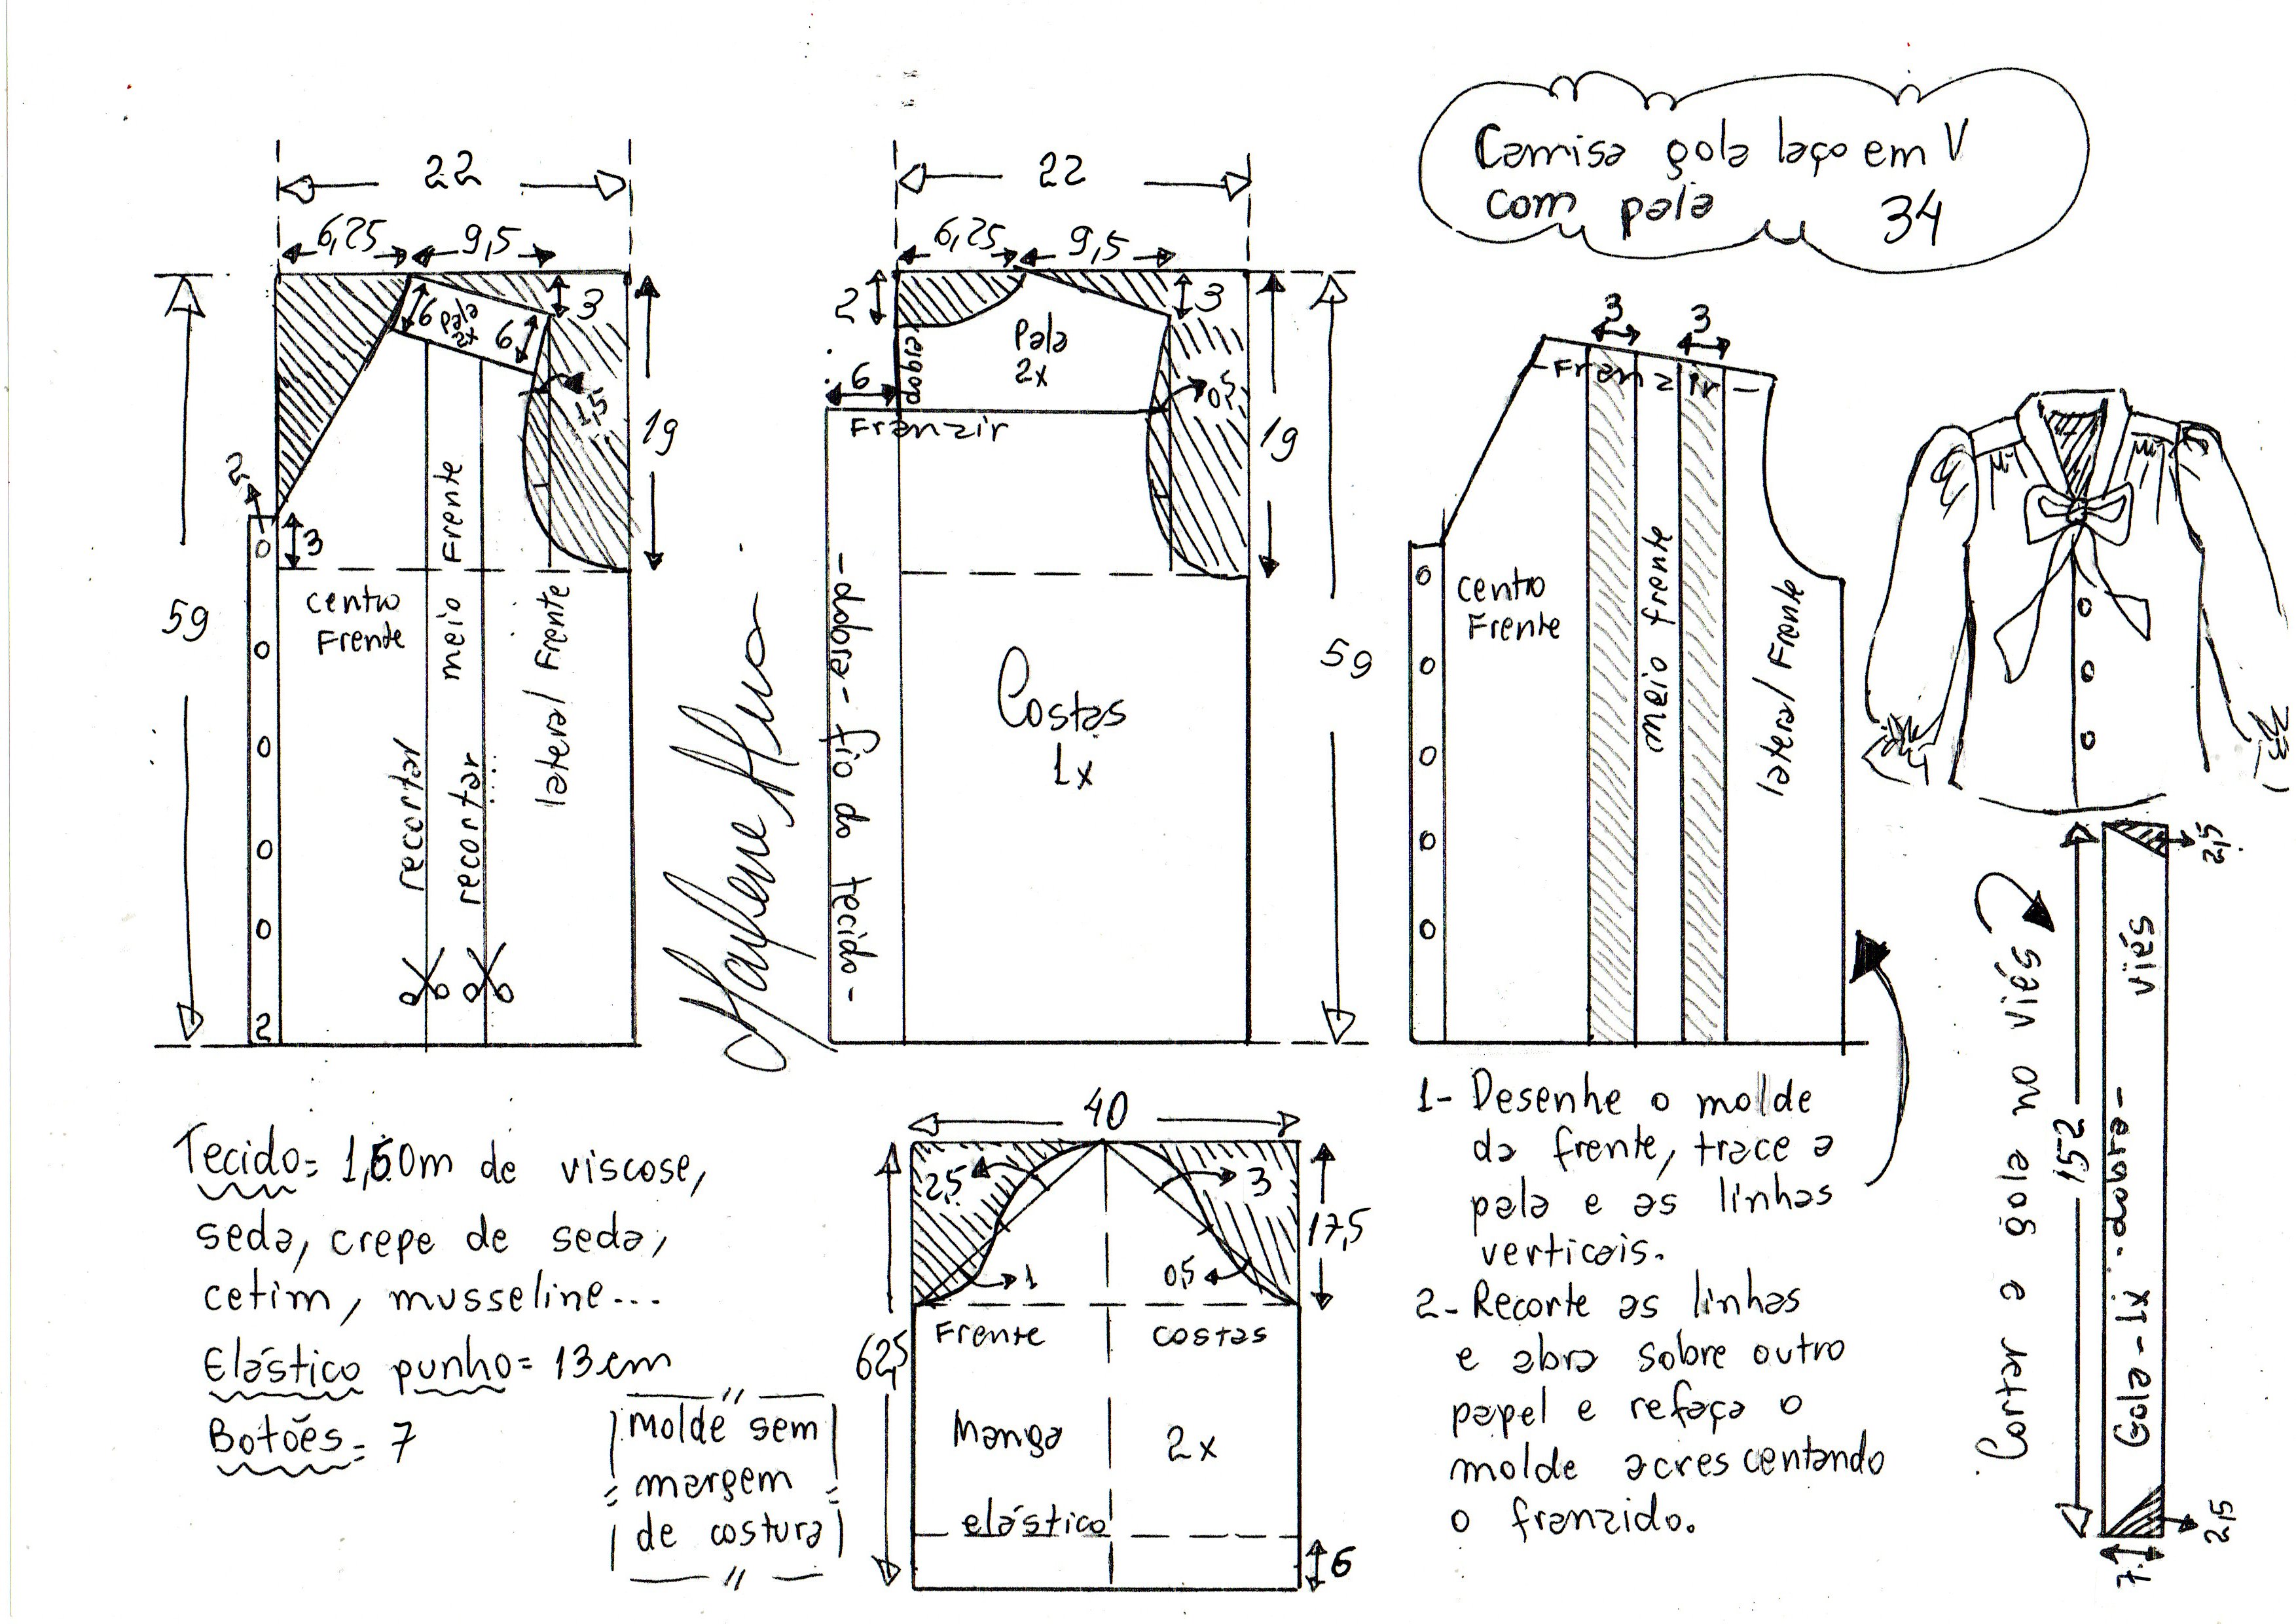 Camisa gola laço em V
com pala 34
22
6,25 9,5
6
Pala
2x
6
3
1,5
19
2
3
59
Centro
Frente
meio Frente
lateral Frente
recortar
recortar
2
Marlene Mukai
22
6,25 9,5
2
3
dobra
Pala
2x
6
0,5
Franzir
19
59
-dobra- fio do tecido-
Costas
1x
3 3
-Franzir-
Centro
Frente
meio frente
lateral Frente
Tecido= 1,50m de viscose,
seda, crepe de seda,
cetim, musseline...
Elástico punho= 13cm
Botões= 7
molde sem
margem
de costura
40
2,5 3
17,5
1 0,5
Frente costas
62,5
Manga 2x
elástico
6
1- Desenhe o molde
da frente, trace a
pala e as linhas
verticais.
2- Recorte as linhas
e abra sobre outro
papel e refaça o
molde acrescentando
o franzido.
Cortar a gola no viés
152
2,5
Gola - 1x -dobra- viés
2,5
7